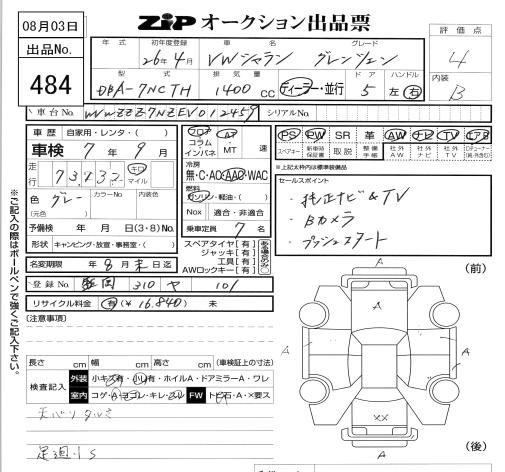 08月03日
出品No.
484
ZIP オークション出品票
評価点
4
内装
B
年式 初年度登録 車名 グレード
26年4月 VWシャラン グレンツェン
型式 排気量 ドア ハンドル
DBA-7NCTH 1400cc ディーラー・並行 5 左 右
車台No. WVWZZZ7NZEV012459 シリアルNo.
車歴 自家用・レンタ・( )
車検 7年 9月
走行 73,432 キロ マイル
色 グレー カラーNo. 内装色
(元色)
予備検 年 月 日(3・8)No.
形状 キャンピング・放宣・事務室・( )
名変期限 年 8月 末日迄
登録No. 盛岡 310 ヤ 101
リサイクル料金 有(¥16,840) 未
フロア AT
コラム
インパネ MT 速
冷房
無・C・AC AAC・WAC
燃料
ガソリン・軽油・( )
Nox 適合・非適合
乗車定員 7 名
スペアタイヤ[有]
ジャッキ[有]
工具[有]
AWロックキー[有]
PS PW SR 革 AW ナビ TV エアB
スペアキー 新車時保証書 取説 整備手帳 社外AW 社外ナビ 社外TV
※上記太枠内は標準装備品
セールスポイント
・純正ナビ&TV
・Bカメラ
・プッシュスタート
※ご記入の際はボールペンで強くご記入下さい。
[注意事項]
長さ cm 幅 cm 高さ cm (車検証上の寸法)
検査記入 外装 小キズ有・小凹有・ホイルA・ドアミラーA・ワレ
室内 コゲ・ヨゴレ・キレ・スレ FW トビ石・A・×要ス
天バリタルミ
足廻りS
(前)
A
A
A A
A
××
A
(後)